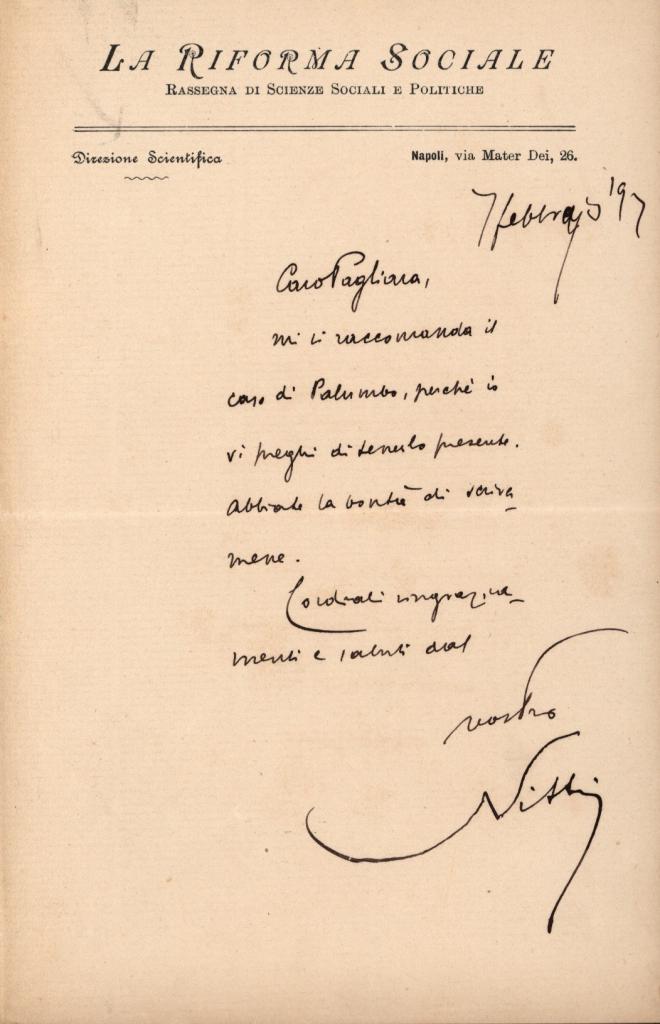 LA RIFORMA SOCIALE
RASSEGNA DI SCIENZE SOCIALI E POLITICHE
Direzione Scientifica
Napoli, via Mater Dei, 26.
7 febbrajo '97
Caro Pagliara,
mi si raccomanda il
caso di Palumbo, perchè io
vi preghi di tenerlo presente.
Abbiate la bontà di scriver
mene.
Cordiali ringrazia_
menti e saluti dal
vostro
Nitti